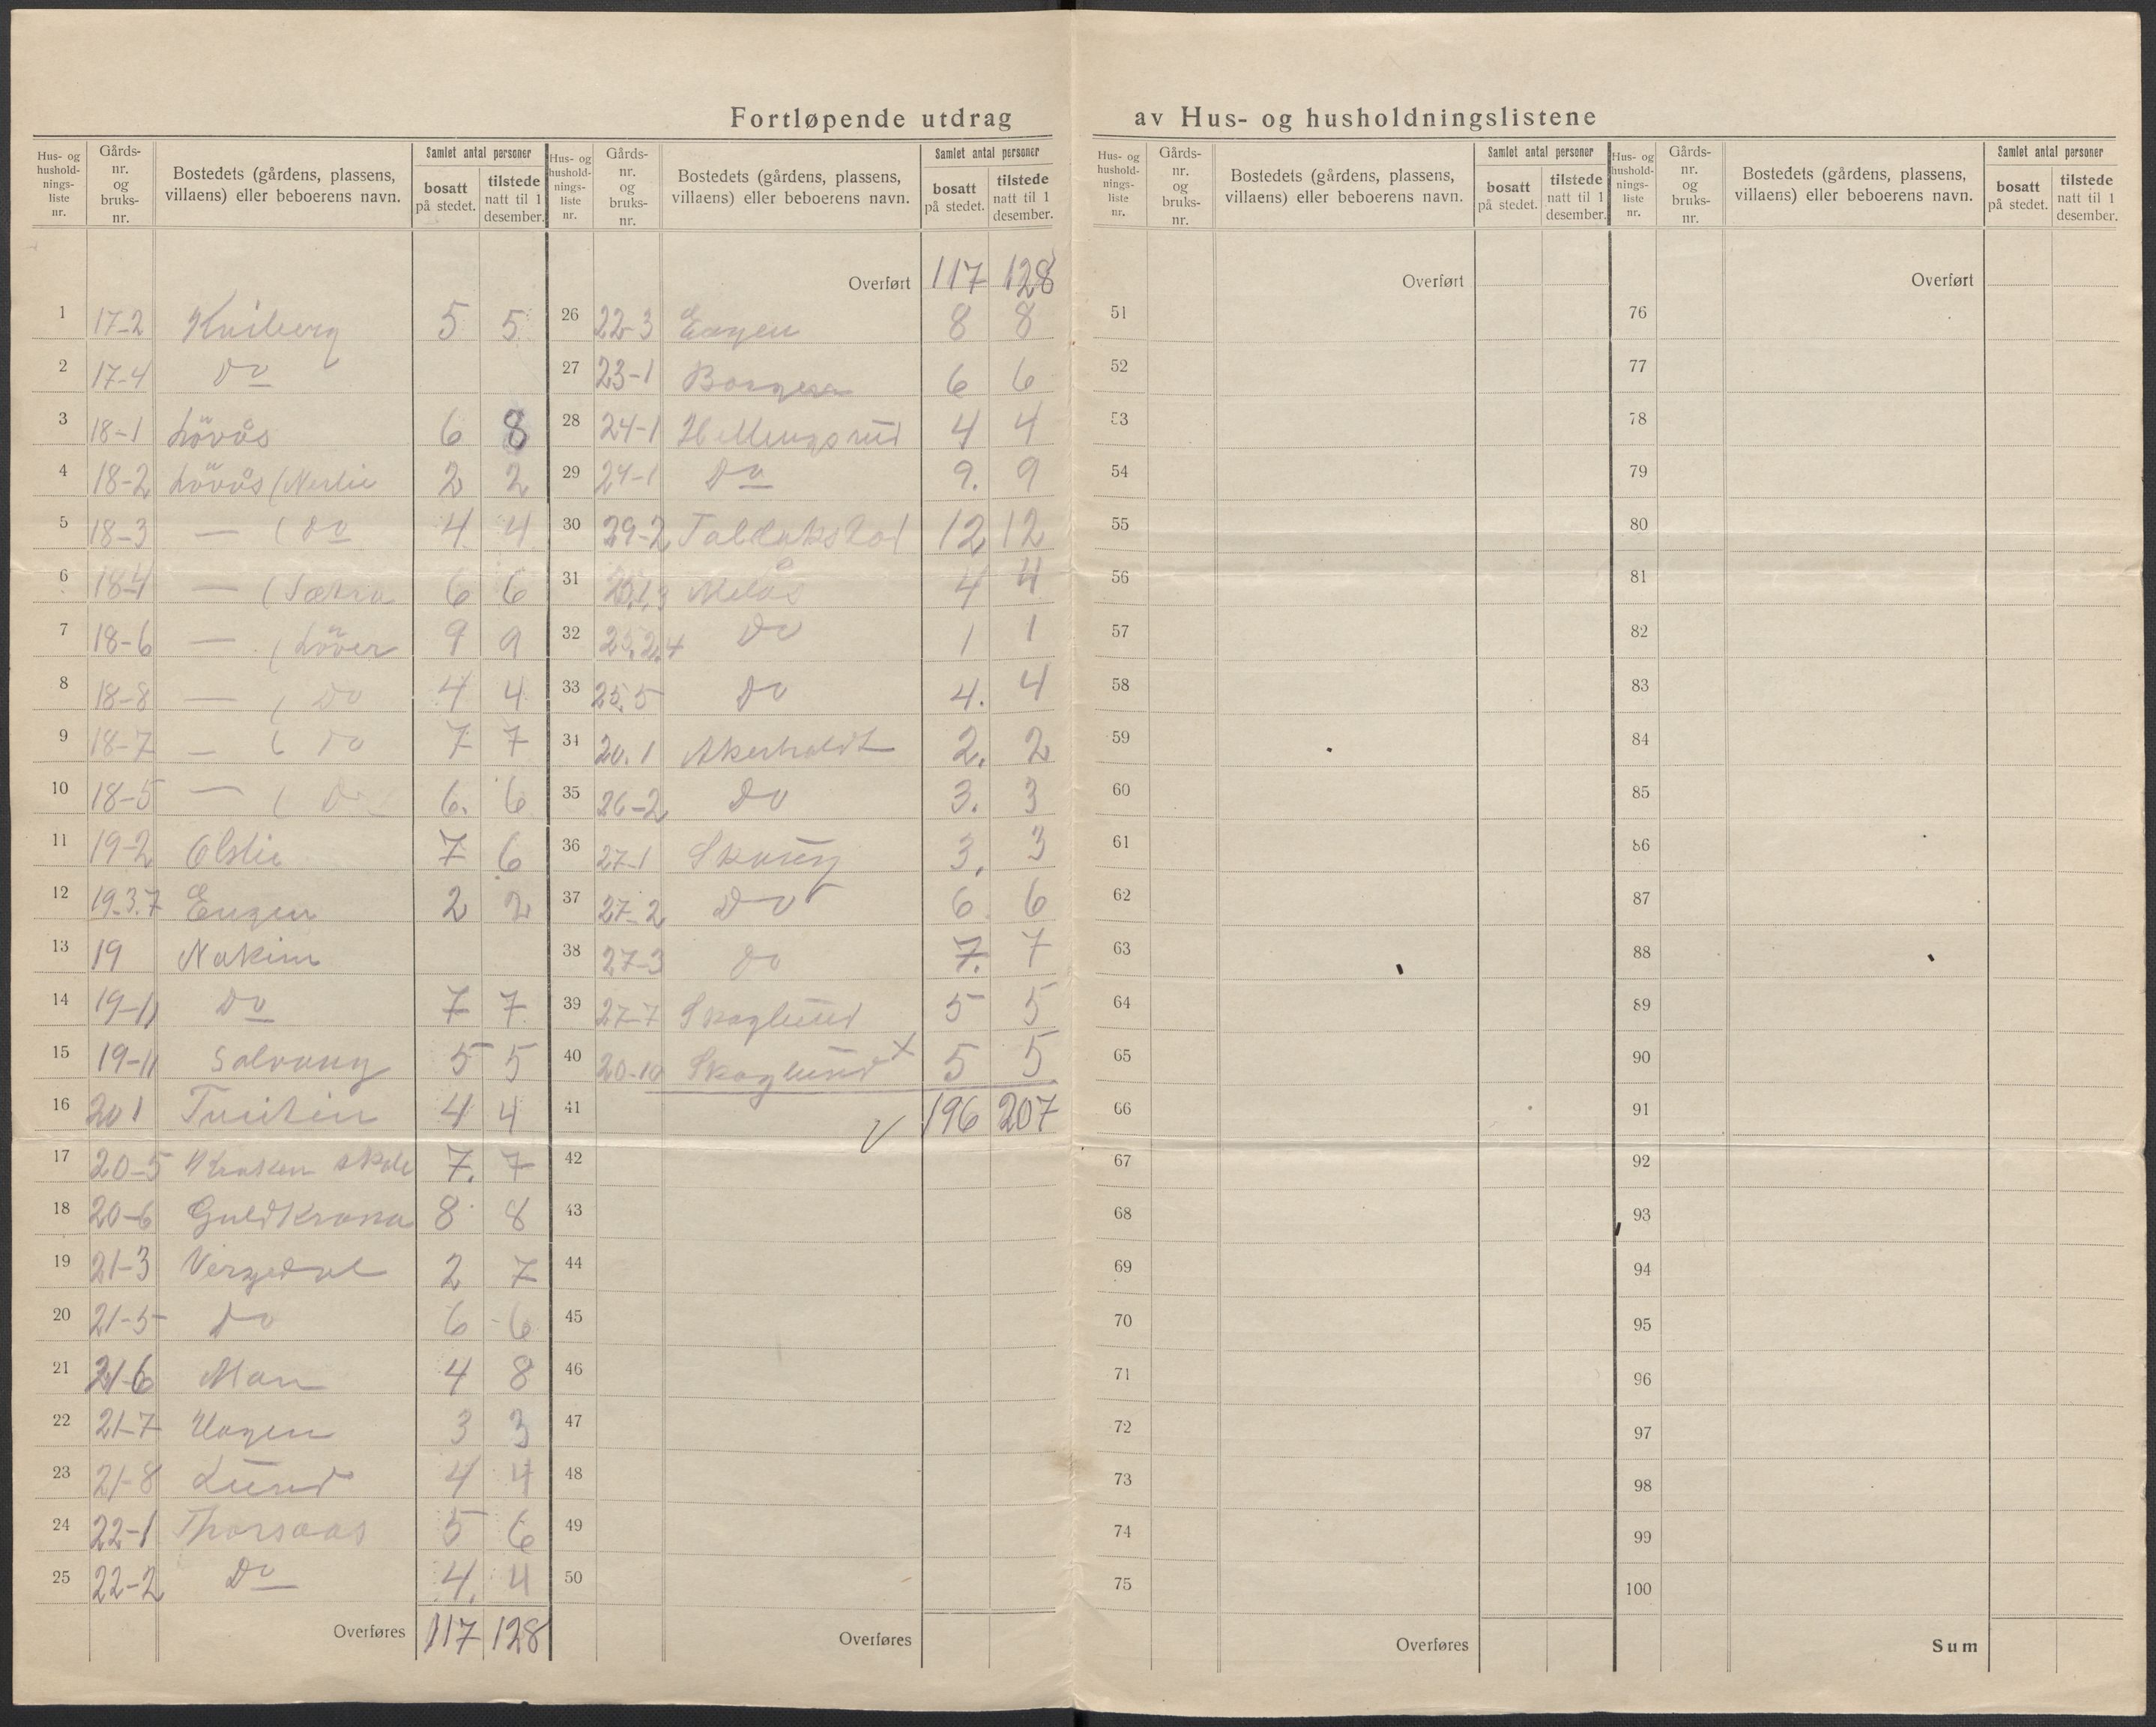 Fortløpende utdrag av Hus- og husholdningslistene
Hus- og hushold-nings-liste nr. | Gårds-nr. og bruks-nr. | Bostedets (gårdens, plassens, villaens) eller beboerens navn. | Samlet antal personer | bosatt på stedet. | tilstede natt til 1 desember.
1 17-2 Kniberg 5 5
2 17-4 Do
3 18-1 Lövås 6 8
4 18-2 Lövås (Nerlie 2 2
5 18-3 — (Do 4 4
6 18-4 — (Sætra 6 6
7 18-6 — (Löver 9 9
8 18-8 — (Do 4 4
9 18-7 — (Do 7 7
10 18-5 — (Do 6. 6
11 19-2 Olslie 7 6
12 19.3.7 Engen 2 2
13 19 Nakim
14 19-11 Do 7 7
15 19-11 Solvang 5 5
16 20 1 Tveiten 4 4
17 20-5 skole 7. 7
18 20-6 Guldkrona 8 8
19 21-3 Vergedal 2 7
20 21-5 Do 6 6
21 21-6 Moen 4 8
22 21-7 Hagen 3 3
23 21-8 Lund 4 4
24 22-1 Thorsaas 5 6
25 22-2 Do 4. 4
Overføres 117 128
Hus- og hushold-nings-liste nr. | Gårds-nr. og bruks-nr. | Bostedets (gårdens, plassens, villaens) eller beboerens navn. | Samlet antal personer | bosatt på stedet. | tilstede natt til 1 desember.
Overført 117 128
26 22-3 Engen 8 8
27 23-1 Borgen 6 6
28 24-1 Hellingsrud 4 4
29 24-1 Do 9. 9
30 29-2 12 12
31 25.1,3 Melås 4 4
32 25.2.4 Do 1 1
33 25.5 Do 4. 4
34 20.1 Akerholdt 2. 2
35 26-2 Do 3. 3
36 27-1 Skoug 3. 3
37 27-2 Do 6 6
38 27-3 Do 7. 7
39 27-7 Skoglund 5 5
40 20-10 Skoglund x 5 5
41 √ 196 207
42
43
44
45
46
47
48
49
50
Overføres
Hus- og hushold-nings-liste nr. | Gårds-nr. og bruks-nr. | Bostedets (gårdens, plassens, villaens) eller beboerens navn. | Samlet antal personer | bosatt på stedet. | tilstede natt til 1 desember.
Overført
51
52
53
54
55
56
57
58
59
60
61
62
63
64
65
66
67
68
69
70
71
72
73
74
75
Overføres
Hus- og hushold-nings-liste nr. | Gårds-nr. og bruks-nr. | Bostedets (gårdens, plassens, villaens) eller beboerens navn. | Samlet antal personer | bosatt på stedet. | tilstede natt til 1 desember.
Overført
76
77
78
79
80
81
82
83
84
85
86
87
88
89
90
91
92
93
94
95
96
97
98
99
100
Sum